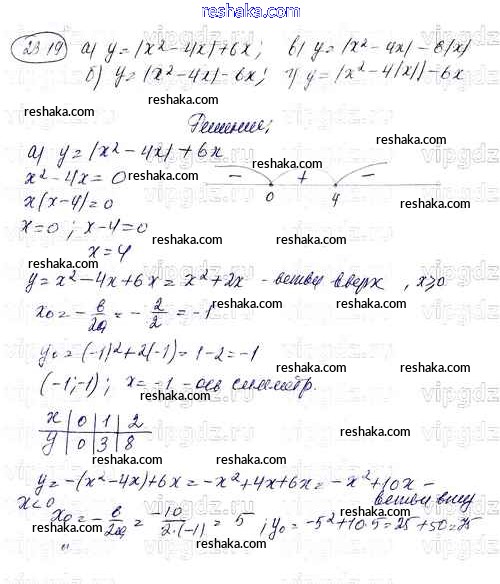 www.reshaka.com
23.19 а) y = |x² - 4x| + 6x; в) y = |x² - 4x| - 6|x|
б) y = |x² - 4x| - 6x; г) y = |x² - 4|x|| - 6x
Решение;
а) y = |x² - 4x| + 6x
x² - 4x = 0
- + -
x(x-4) = 0
0 4
x = 0; x-4 = 0
x = 4
y = x² - 4x + 6x = x² + 2x - ветви вверх, x ≥ 0
x₀ = - в/2a = - 2/2 = -1
y₀ = (-1)² + 2(-1) = 1 - 2 = -1
(-1;-1); x = -1 - ось симметр.
x | 0 | 1 | 2
y | 0 | 3 | 8
y = -(x² - 4x) + 6x = -x² + 4x + 6x = -x² + 10x -
x < 0 ветви вниз
x₀ = - в/2a = -10/2·(-1) = 5; y₀ = -5² + 10·5 = 25 + 50 = 25
reshaka.com
vipgdz.ru